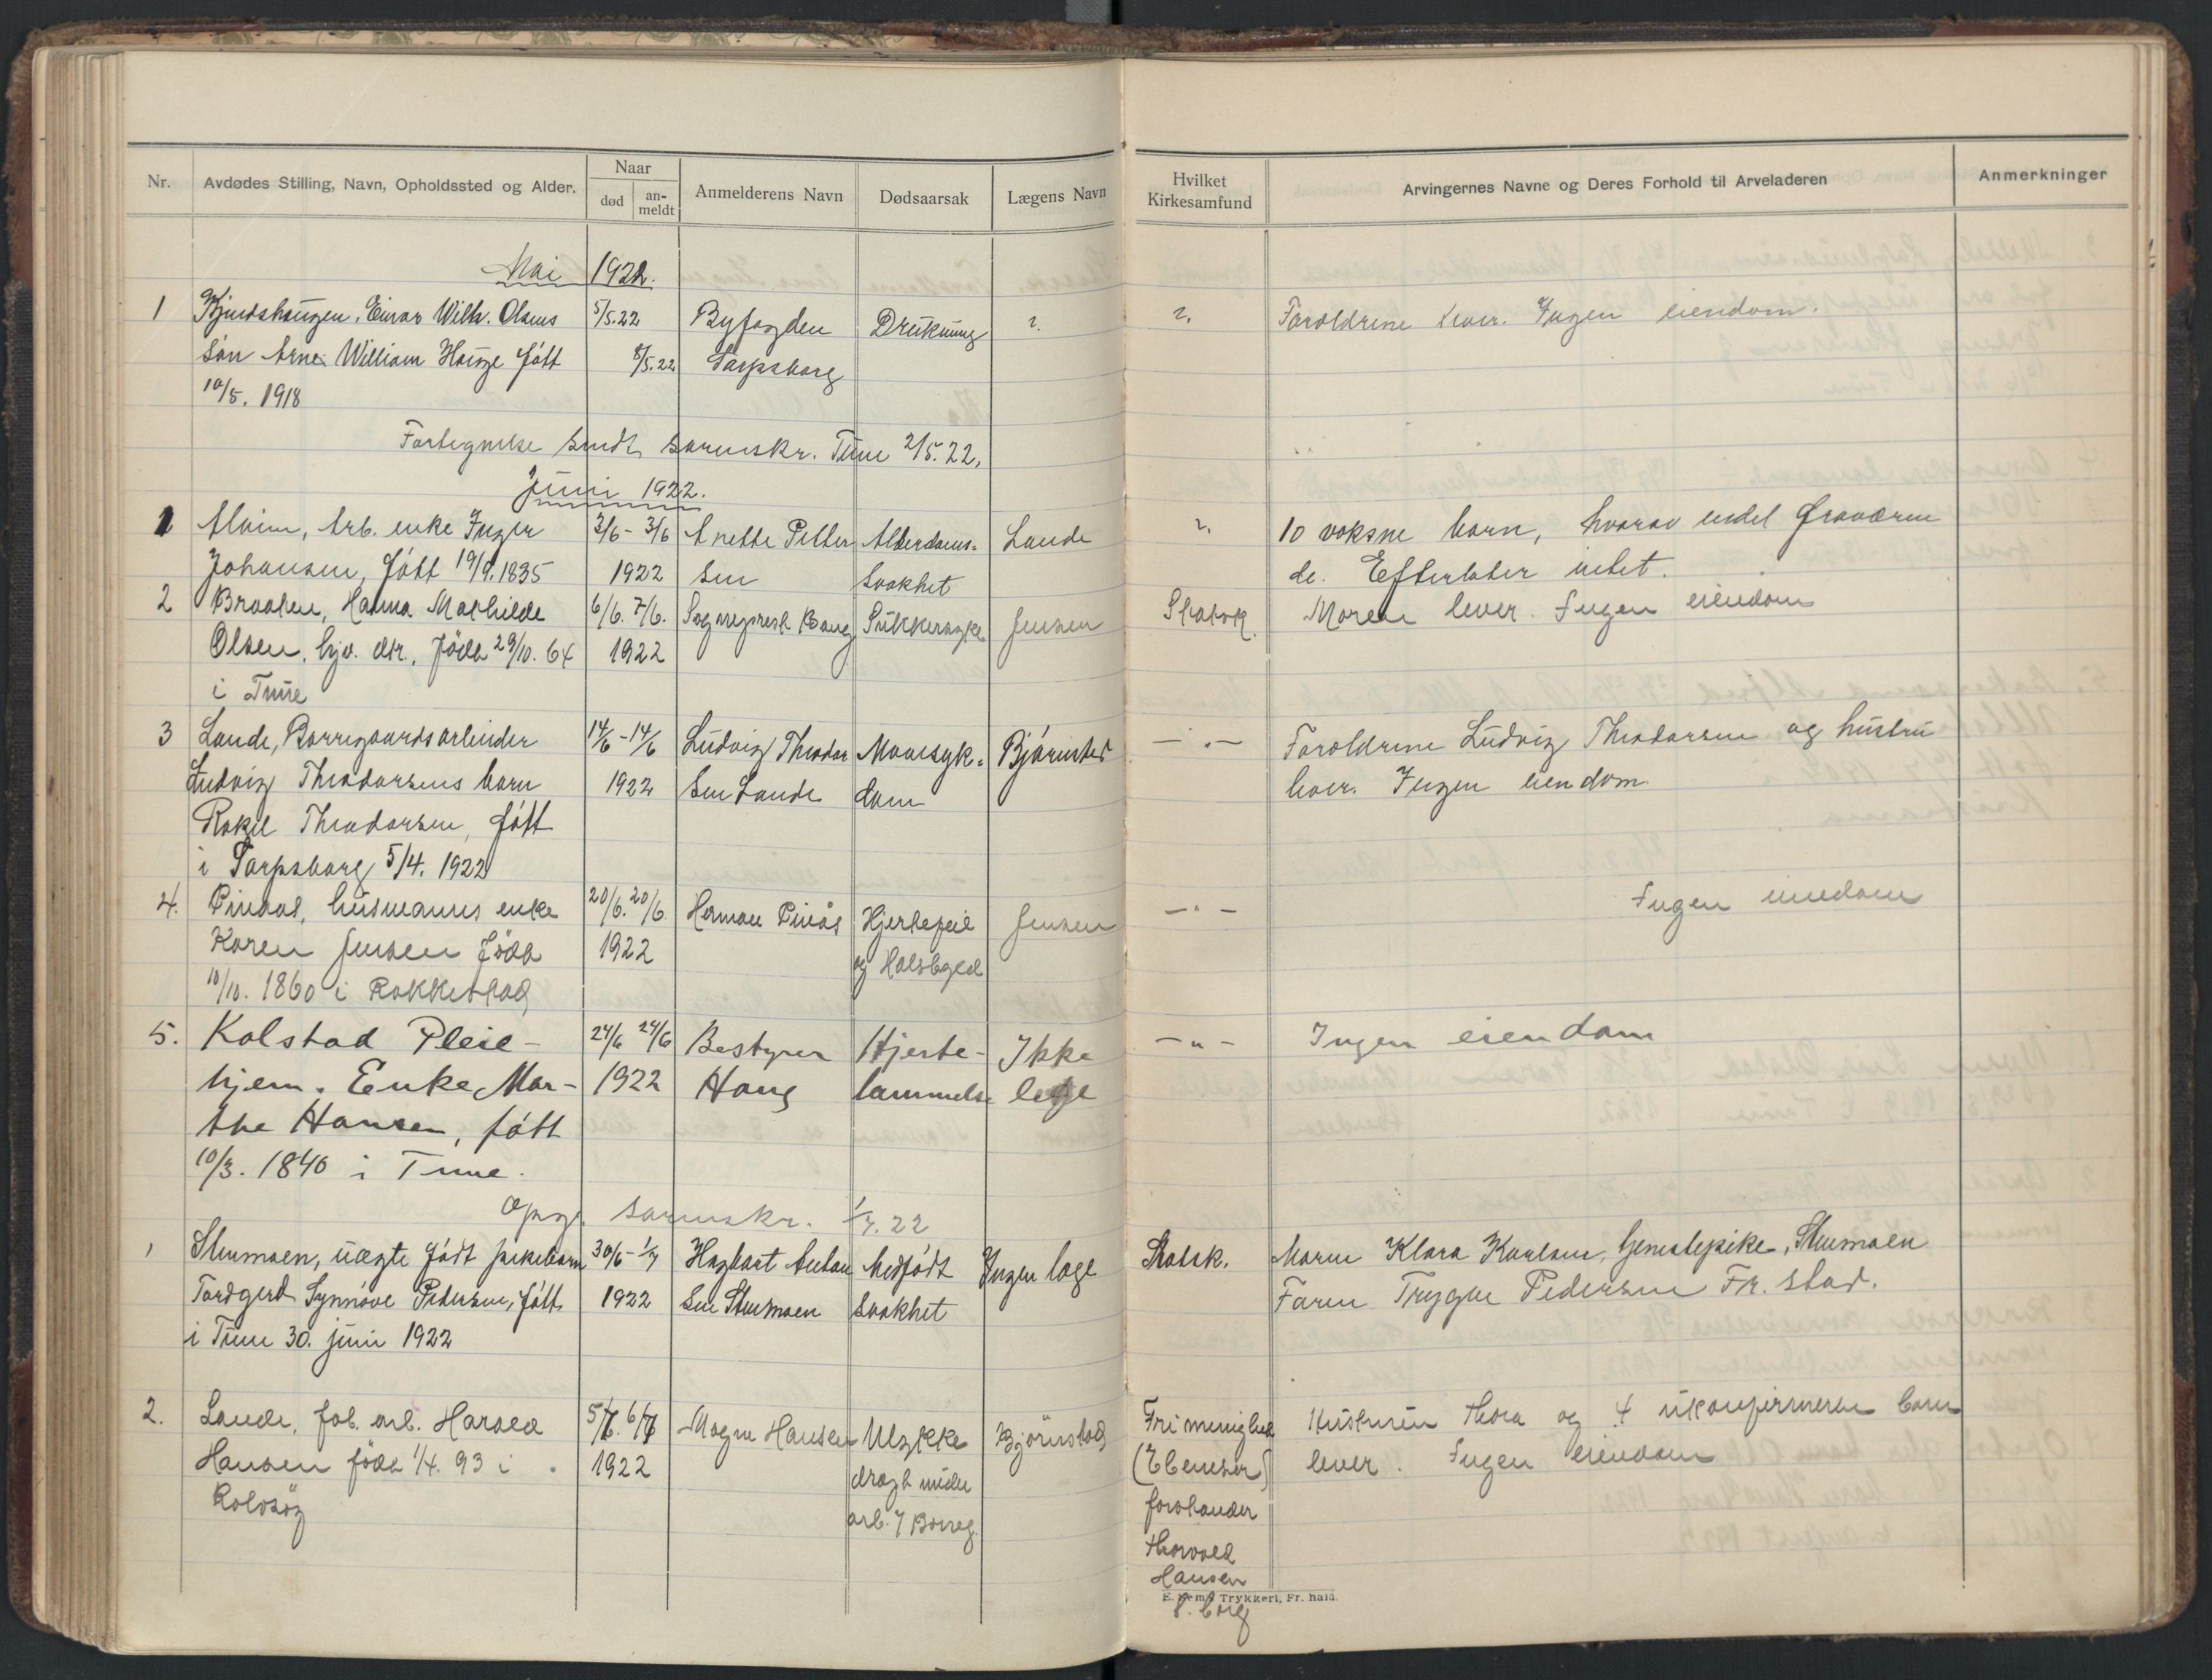 Nr.
Avdødes Stilling, Navn, Opholdssted og Alder.
Naar
død
an-
meldt
Anmelderens Navn
Dødsaarsak
Lægens Navn
Hvilket
Kirkesamfund
Arvingernes Navne og Deres Forhold til Arveladeren
Anmerkninger
Mai 1922.
1 Einar Wilh. Olsens 5/5.22 Byfogden Drukning ?. ?. Forældrene lever. Ingen eiendom.
søn Arne William Hauge født 8/5.22 Sarpsborg
10/5. 1918
Fortegnelse sendt sorenskr. Tune 2/5.22.
Juni 1922.
1 Alvim, Arb. enke Inger 3/6 - 3/6 Anette Petter Alderdoms- Lande ?. 10 voksne barn, hvorav endel fraværen
Johansen, født 19/9.1835 1922 sen svakhet de. Efterlater intet.
2 Braaten, Hanna Mathilde 6/6. 7/6. Sogneprest Bang Sukkersyke Jensen Statsk. Moren lever. Ingen eiendom
Olsen, hjv. dtr., født 29/10. 64 1922
i Tune
3 Lande, Borregaardsarbeider 14/6 - 14/6 Ludvig Theodor Mavesyk- Bjørnstad — " — Forældrene Ludvig Theodorsen og hustru
Ludvig Theodorsens barn 1922 sen Lande dom lever. Ingen eiendom.
Rakel Theodorsen, født
i Sarpsborg 5/4. 1922
4. husmanns enke 20/6. 20/6 Herman Hjertefeil Jensen — " — Ingen eiendom
Karen Jensen født 1922 og Halsbyld
10/10. 1860 i Rakkestad
5. Kalstad Pleie- 24/6 24/6 Bestyrer Hjerte- Ikke — " — Ingen eiendom
hjem. Enke Mar- 1922 Haug lammelse lege
the Hansen, født
10/3. 1840 i Tune.
Opg. sorenskr. 1/7.22
1 uægte født pikebarn 30/6 - 1/7 Hagbart Anton Medfødt Ingen læge Statsk. Moren Klara Karlsen, tjenestepike,
Tordgerd Synnøve Pedersen, født 1922 sen svakhet Faren Trygve Pedersen Fr. stad.
i Tune 30. juni 1922
2. Lande, fab. arb. Harald 5/7. 6/7 Magne Hansen Ulykke Bjørnstad Frimenighed Hustruen Thora og 4 ukonfirmerte barn
Hansen født 1/4. 93 i 1922 dragt under (Ebeneser) lever. Ingen eiendom
Rolvsøy arb. / Borreg. forstander
Thorvald
Hansen
S. borg
Trykkeri, Fr. hald.